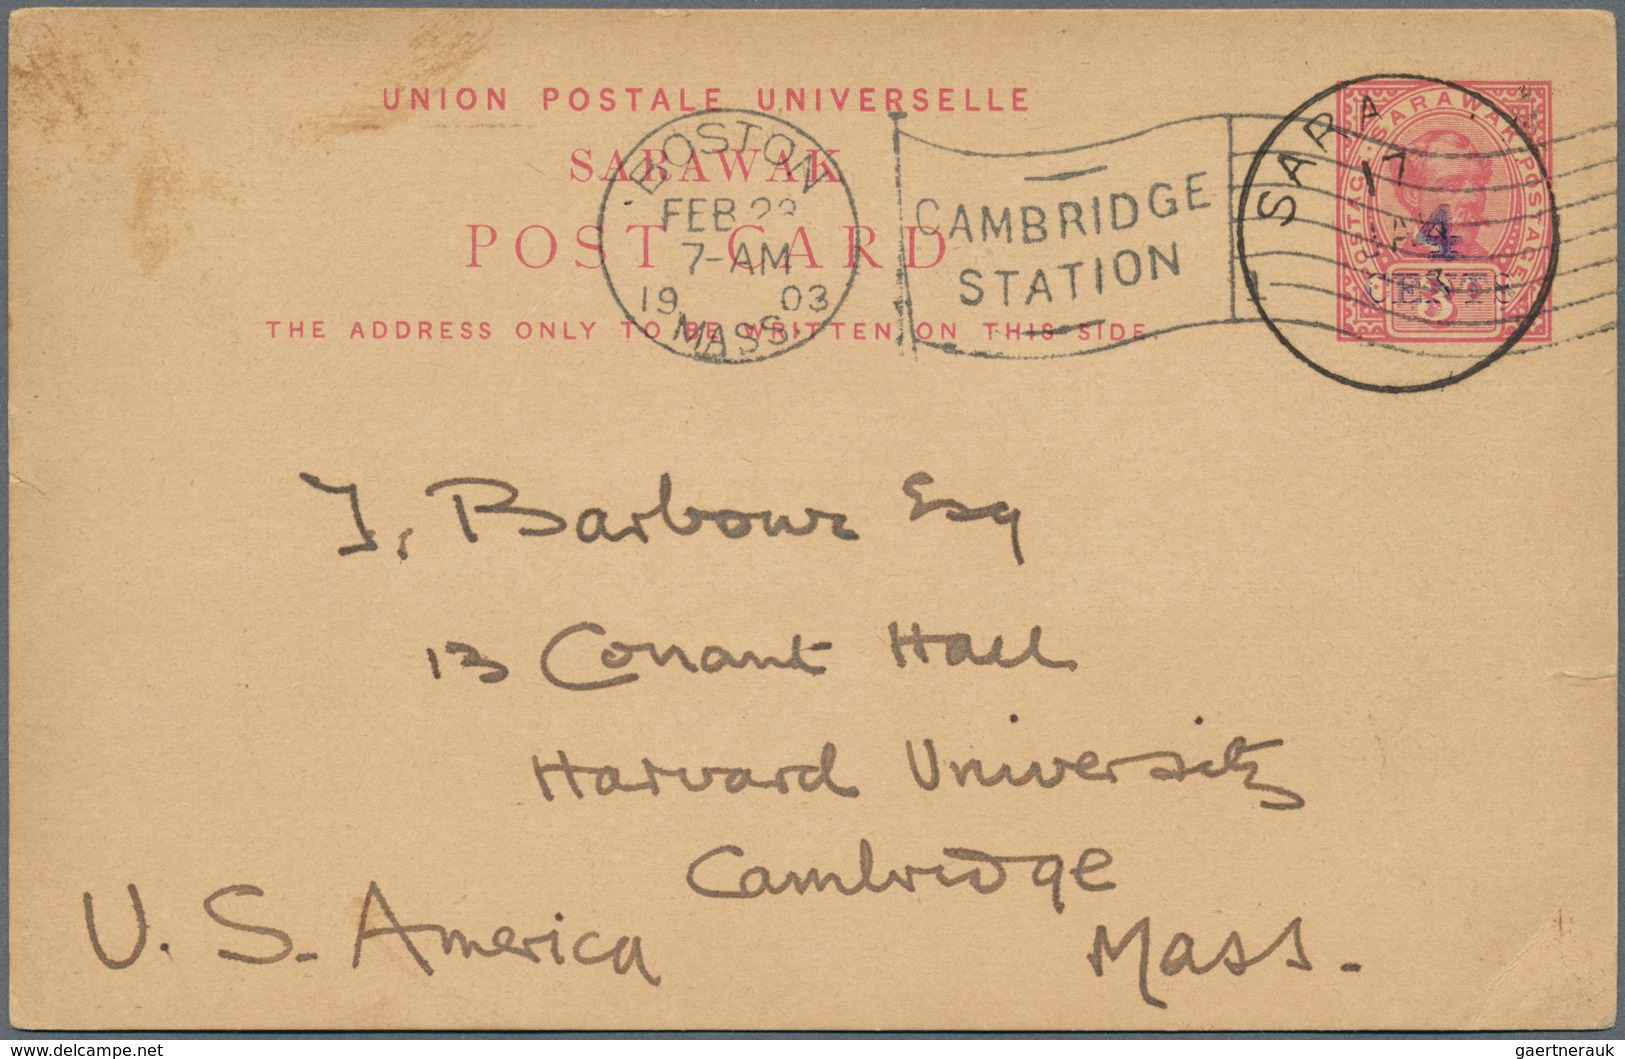 UNION POSTALE UNIVERSELLE
SARAWAK
POST CARD
THE ADDRESS ONLY TO BE WRITTEN ON THIS SIDE.
BOSTON
FEB 28
7-AM
19 03
MASS.
CAMBRIDGE
STATION
SARA
17
SARAWAK POSTAGE
4
CENTS
3
T. Barbour Esq
13 Conant Hall
Harvard University
Cambridge
Mass.
U. S. America
www.delcampe.net
gaertnerauk